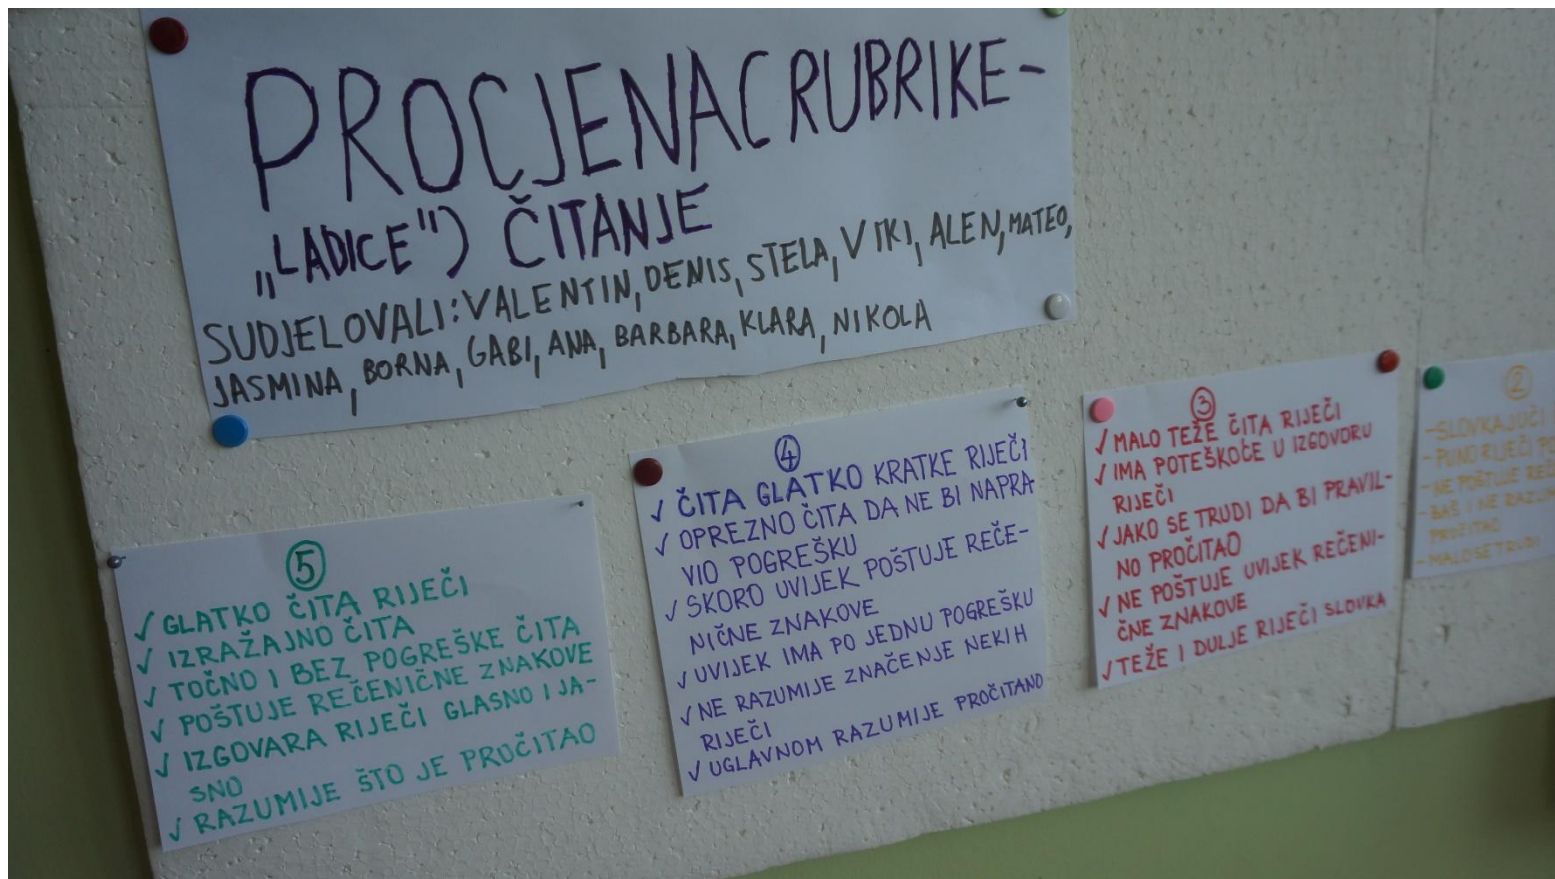 PROCJENA (RUBRIKE-
„LADICE") ČITANJE
SUDJELOVALI: VALENTIN, DENIS, STELA, VIKI, ALEN, MATEO,
JASMINA, BORNA, GABI, ANA, BARBARA, KLARA, NIKOLA
5
✓ GLATKO ČITA RIJEČI
✓ IZRAŽAJNO ČITA
✓ TOČNO I BEZ POGREŠKE ČITA
✓ POŠTUJE REČENIČNE ZNAKOVE
✓ IZGOVARA RIJEČI GLASNO I JA-
SNO
✓ RAZUMIJE ŠTO JE PROČITAO
4
✓ ČITA GLATKO KRATKE RIJEČI
✓ OPREZNO ČITA DA NE BI NAPRA-
VIO POGREŠKU
✓ SKORO UVIJEK POŠTUJE REČE-
NIČNE ZNAKOVE
✓ UVIJEK IMA PO JEDNU POGREŠKU
✓ NE RAZUMIJE ZNAČENJE NEKIH
RIJEČI
✓ UGLAVNOM RAZUMIJE PROČITANO
3
✓ MALO TEŽE ČITA RIJEČI
✓ IMA POTEŠKOĆE U IZGOVORU
RIJEČI
✓ JAKO SE TRUDI DA BI PRAVIL-
NO PROČITAO
✓ NE POŠTUJE UVIJEK REČENI-
ČNE ZNAKOVE
✓ TEŽE I DULJE RIJEČI SLOVKA
2
- SLOVKAJUĆI
- PUNO RIJEČI
- NE POŠTUJE
- BAŠ I NE
PROČITAO
- MALO SE TRUDI